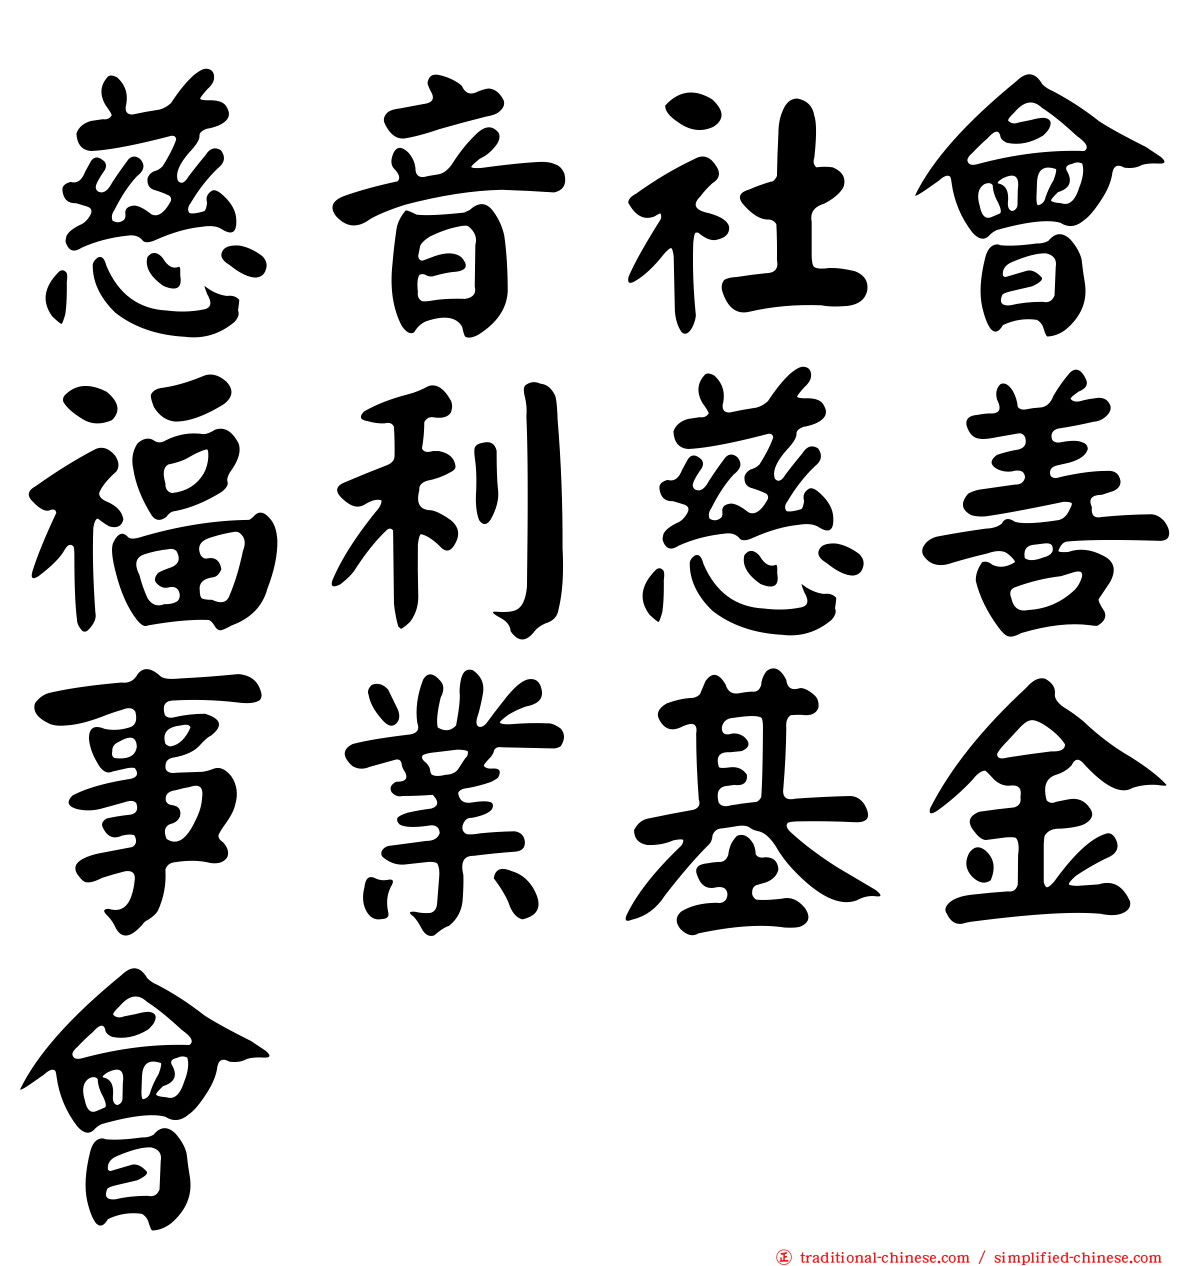 慈音社會
福利慈善
事業基金
會
正 traditional-chinese.com / simplified-chinese.com